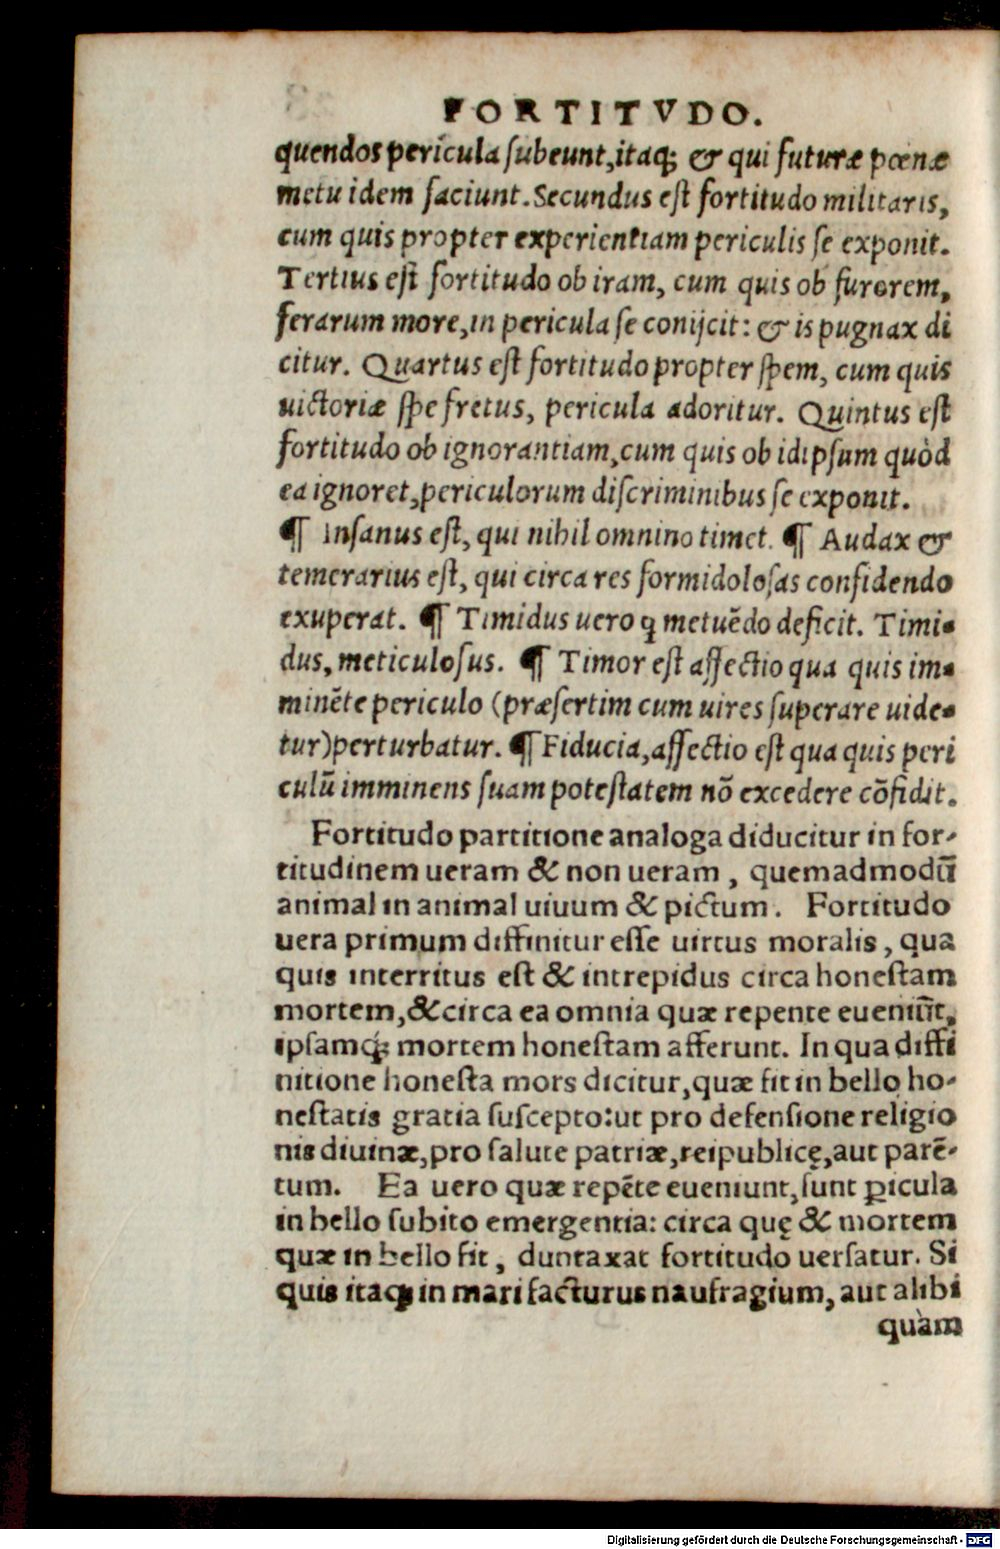 FORTITVDO.
quendos pericula ſubeunt, itaq; & qui futuræ pœnæ
metu idem faciunt. Secundus eſt fortitudo militaris,
cum quis propter experientiam periculis ſe exponit.
Tertius eſt fortitudo ob iram, cum quis ob furorem,
ferarum more, in pericula ſe conijcit: & is pugnax di
citur. Quartus eſt fortitudo propter ſpem, cum quis
uictoriæ ſpe fretus, pericula adoritur. Quintus eſt
fortitudo ob ignorantiam, cum quis ob idipſum quòd
ea ignoret, periculorum diſcriminibus ſe exponit.
¶ Inſanus eſt, qui nihil omnino timet. ¶ Audax &
temerarius eſt, qui circa res formidoloſas confidendo
exuperat. ¶ Timidus uero q̃ metuẽdo deficit. Timi-
dus, meticuloſus. ¶ Timor eſt affectio qua quis im-
minẽte periculo (præſertim cum uires ſuperare uide-
tur) perturbatur. ¶ Fiducia, affectio eſt qua quis peri
culũ imminens ſuam poteſtatem nõ excedere cõfidit.
Fortitudo partitione analoga diducitur in for-
titudinem ueram & non ueram, quemadmodũ
animal in animal uiuum & pictum. Fortitudo
uera primum diffinitur eſſe uirtus moralis, qua
quis interritus eſt & intrepidus circa honeſtam
mortem, & circa ea omnia quæ repente eueniũt,
ipſamq́; mortem honeſtam afferunt. In qua diffi
nitione honeſta mors dicitur, quæ fit in bello ho-
neſtatis gratia ſuſcepto: ut pro defenſione religio
nis diuinæ, pro ſalute patriæ, reipublicę, aut parẽ-
tum. Ea uero quæ repẽte eueniunt, ſunt ꝑicula
in bello ſubito emergentia: circa quę & mortem
quæ in bello fit, duntaxat fortitudo uerſatur. Si
quis itaq; in mari facturus naufragium, aut alibi
quàm
Digitalisierung gefördert durch die Deutsche Forschungsgemeinschaft - DFG